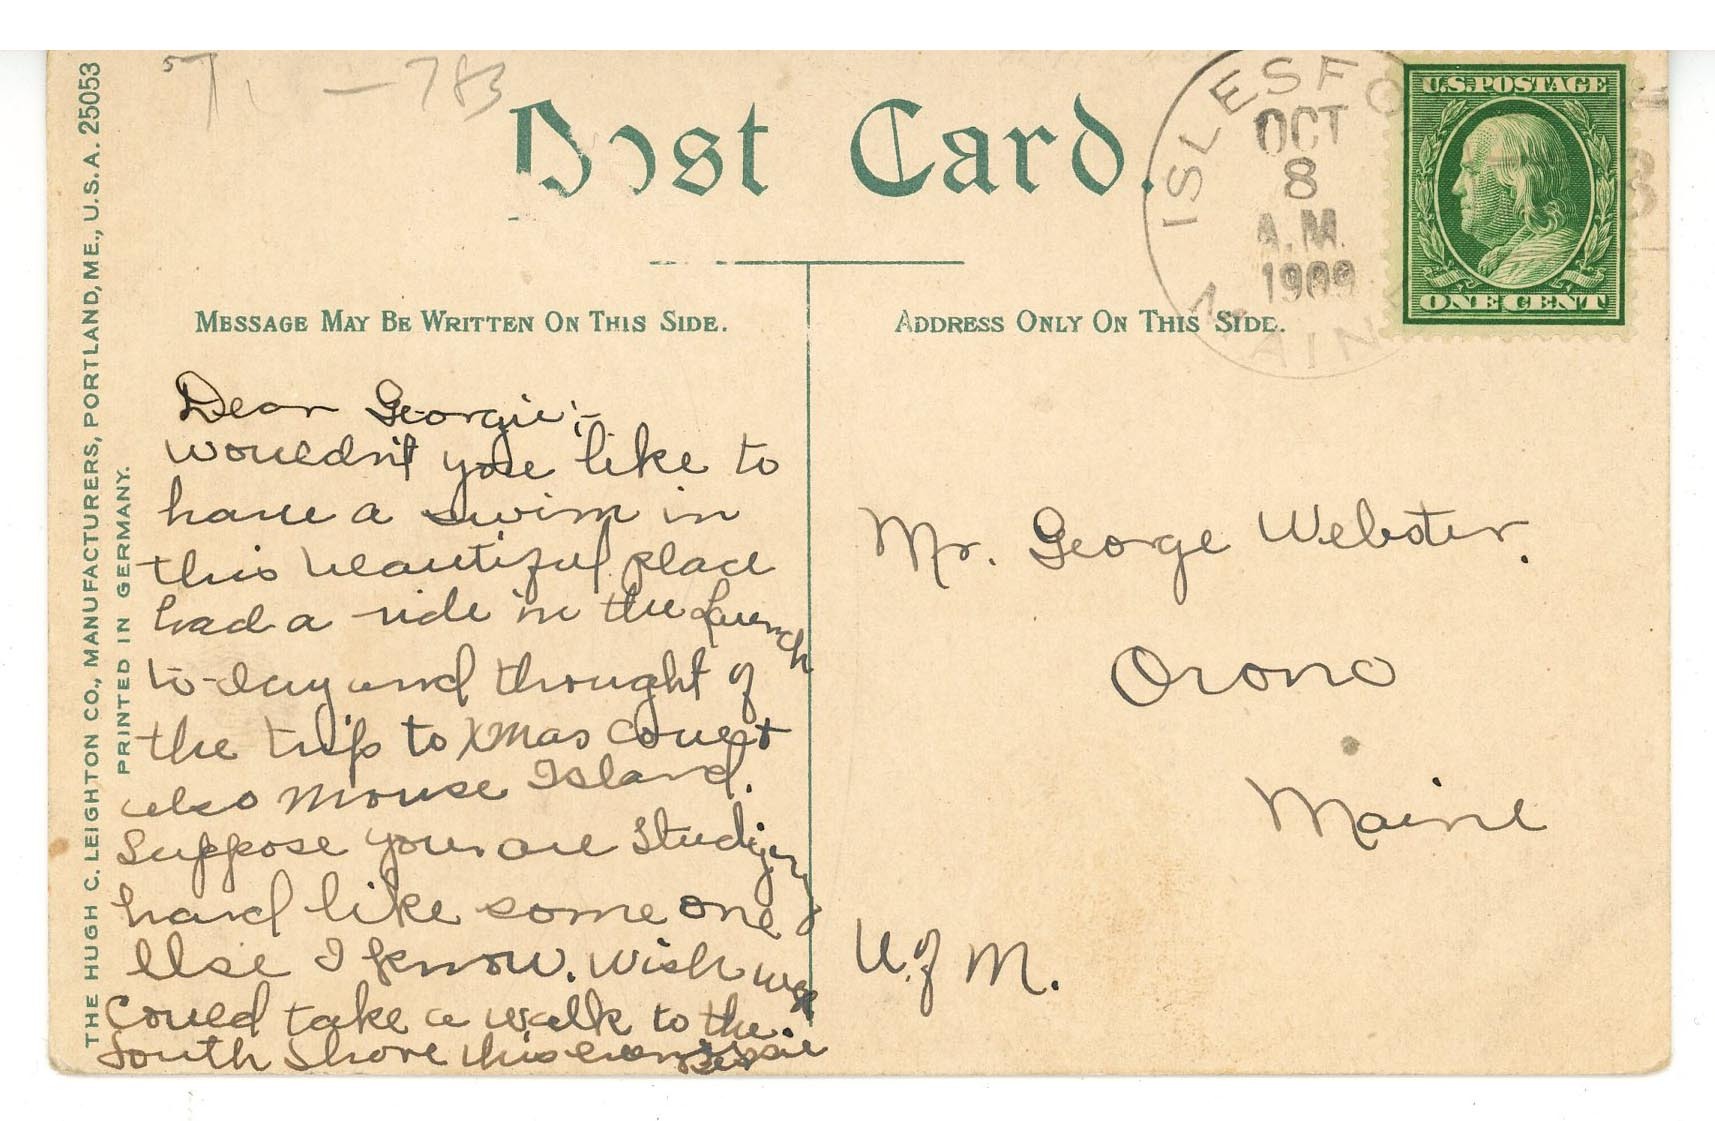 - 783
Post Card.
ISLESFO
MAINE
OCT
8
A.M.
1909
U.S. POSTAGE
ONE CENT
THE HUGH C. LEIGHTON CO., MANUFACTURERS, PORTLAND, ME., U.S.A. 25053
PRINTED IN GERMANY.
MESSAGE MAY BE WRITTEN ON THIS SIDE.
Dear Georgie:-
Wouldn't you like to
have a swim in
this beautiful place
had a ride in the launch
to-day and thought of
the trip to Xmas Cove +
also Mouse Island.
Suppose you are Studying
hard like some one
else I know. Wish we
Could take a walk to the
South Shore this Bessie
ADDRESS ONLY ON THIS SIDE.
Mr. George Webster.
Orono
Maine
U. of M.